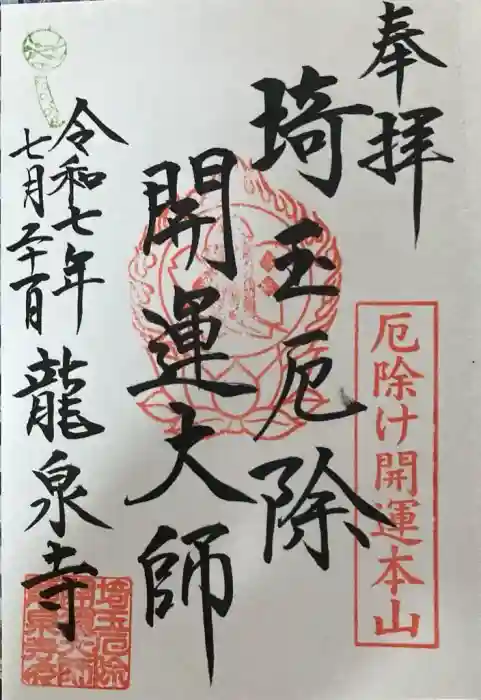 奉拝
厄除け開運本山
埼玉厄除
開運大師
令和七年
七月二十一日
龍泉寺
埼玉厄除